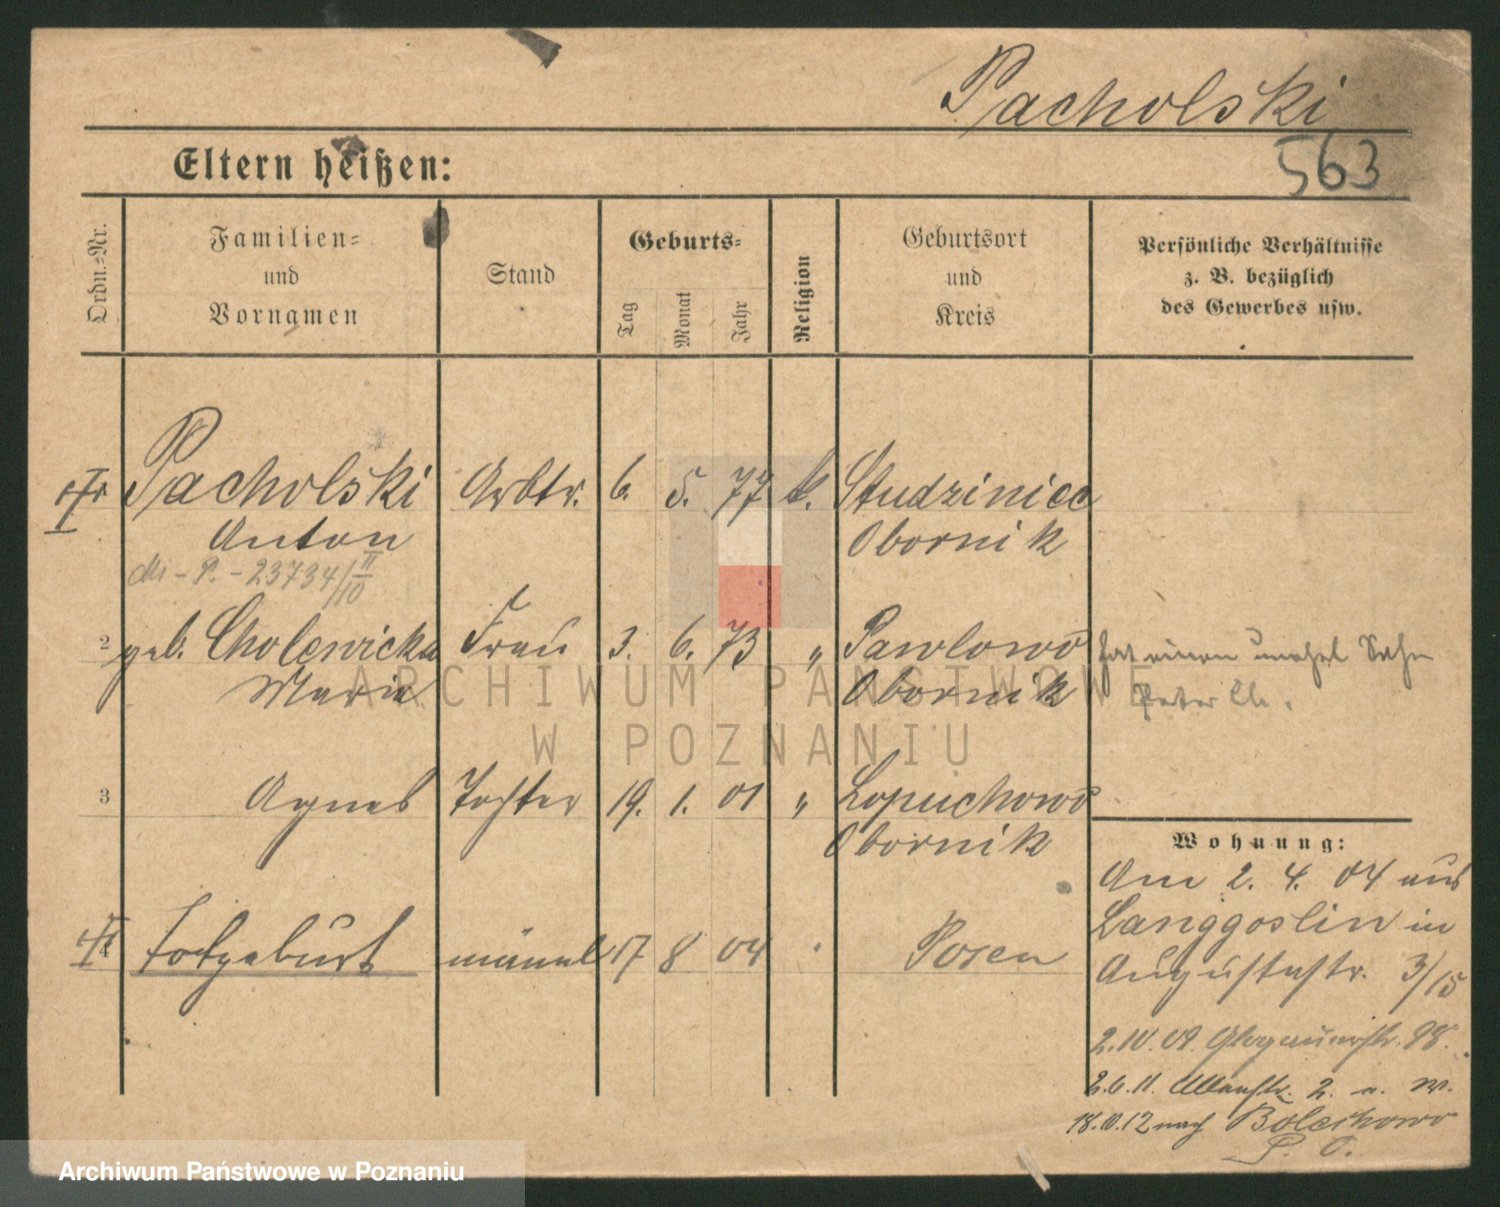 Pacholski
563
Eltern heißen:
Ordn.=Nr.
Familien=
und
Vornamen
Stand
Geburts=
Tag
Monat
Jahr
Religion
Geburtsort
und
Kreis
Persönliche Verhältnisse
z. B. bezüglich
des Gewerbes usw.
Pacholski Arbtr. 6. 5. 77 k. Studziniec
Anton Obornik
- P. - 23734/II/10
2 geb. Cholewicka Frau 3. 6. 73 " Pawlowo hat einen unehel Sohn
Maria Obornik Peter Ch.
3 Agnes Tochter 19. 1. 01 " Lopuchowo
Obornik
Wohnung:
Am 2. 4. 04 aus
Langgoslin in
Augustastr. 3/15
4 Totgeburt männl 17 8 04 " Posen
2. IV. 09. Glogauerstr. 98.
2.6.11. 2. a. W.
18.10.12 nach Bolechowo
P. O.
ARCHIWUM PAŃSTWOWE
W POZNANIU
Archiwum Państwowe w Poznaniu